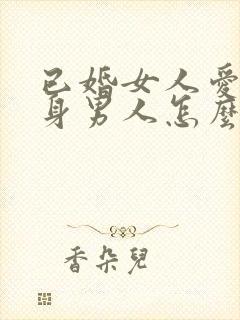 已婚女人愛
身男人怎麼
香朵兒